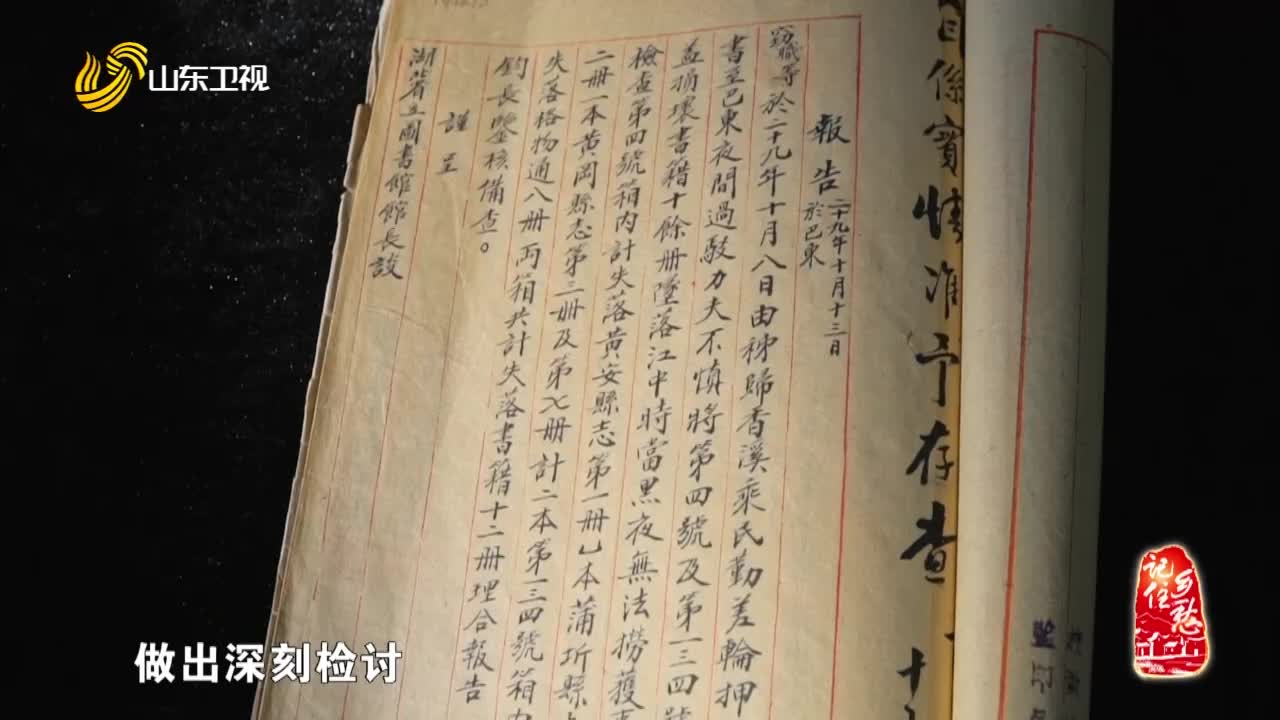 山东卫视
目係實情准予存查
報告 二十九年十月十三日
於巴東
竊職等於二十九年十月八日由秭歸香溪乘民勤差輪押
書至巴東夜間過駁力夫不慎將第四號及第一三四號
並損壞書籍十餘册墜落江中時當黑夜無法撈獲
檢查第四號箱內計失落黃安縣志第一册乙本蒲圻縣
二册一本黃岡縣志第三册及第七册計二本第一三四號箱
失落格物通八册兩箱共計失落書籍十二册理合報告
鈞長鑒核備查。
謹呈
湖北省立圖書館館長談
做出深刻检讨
记住乡愁